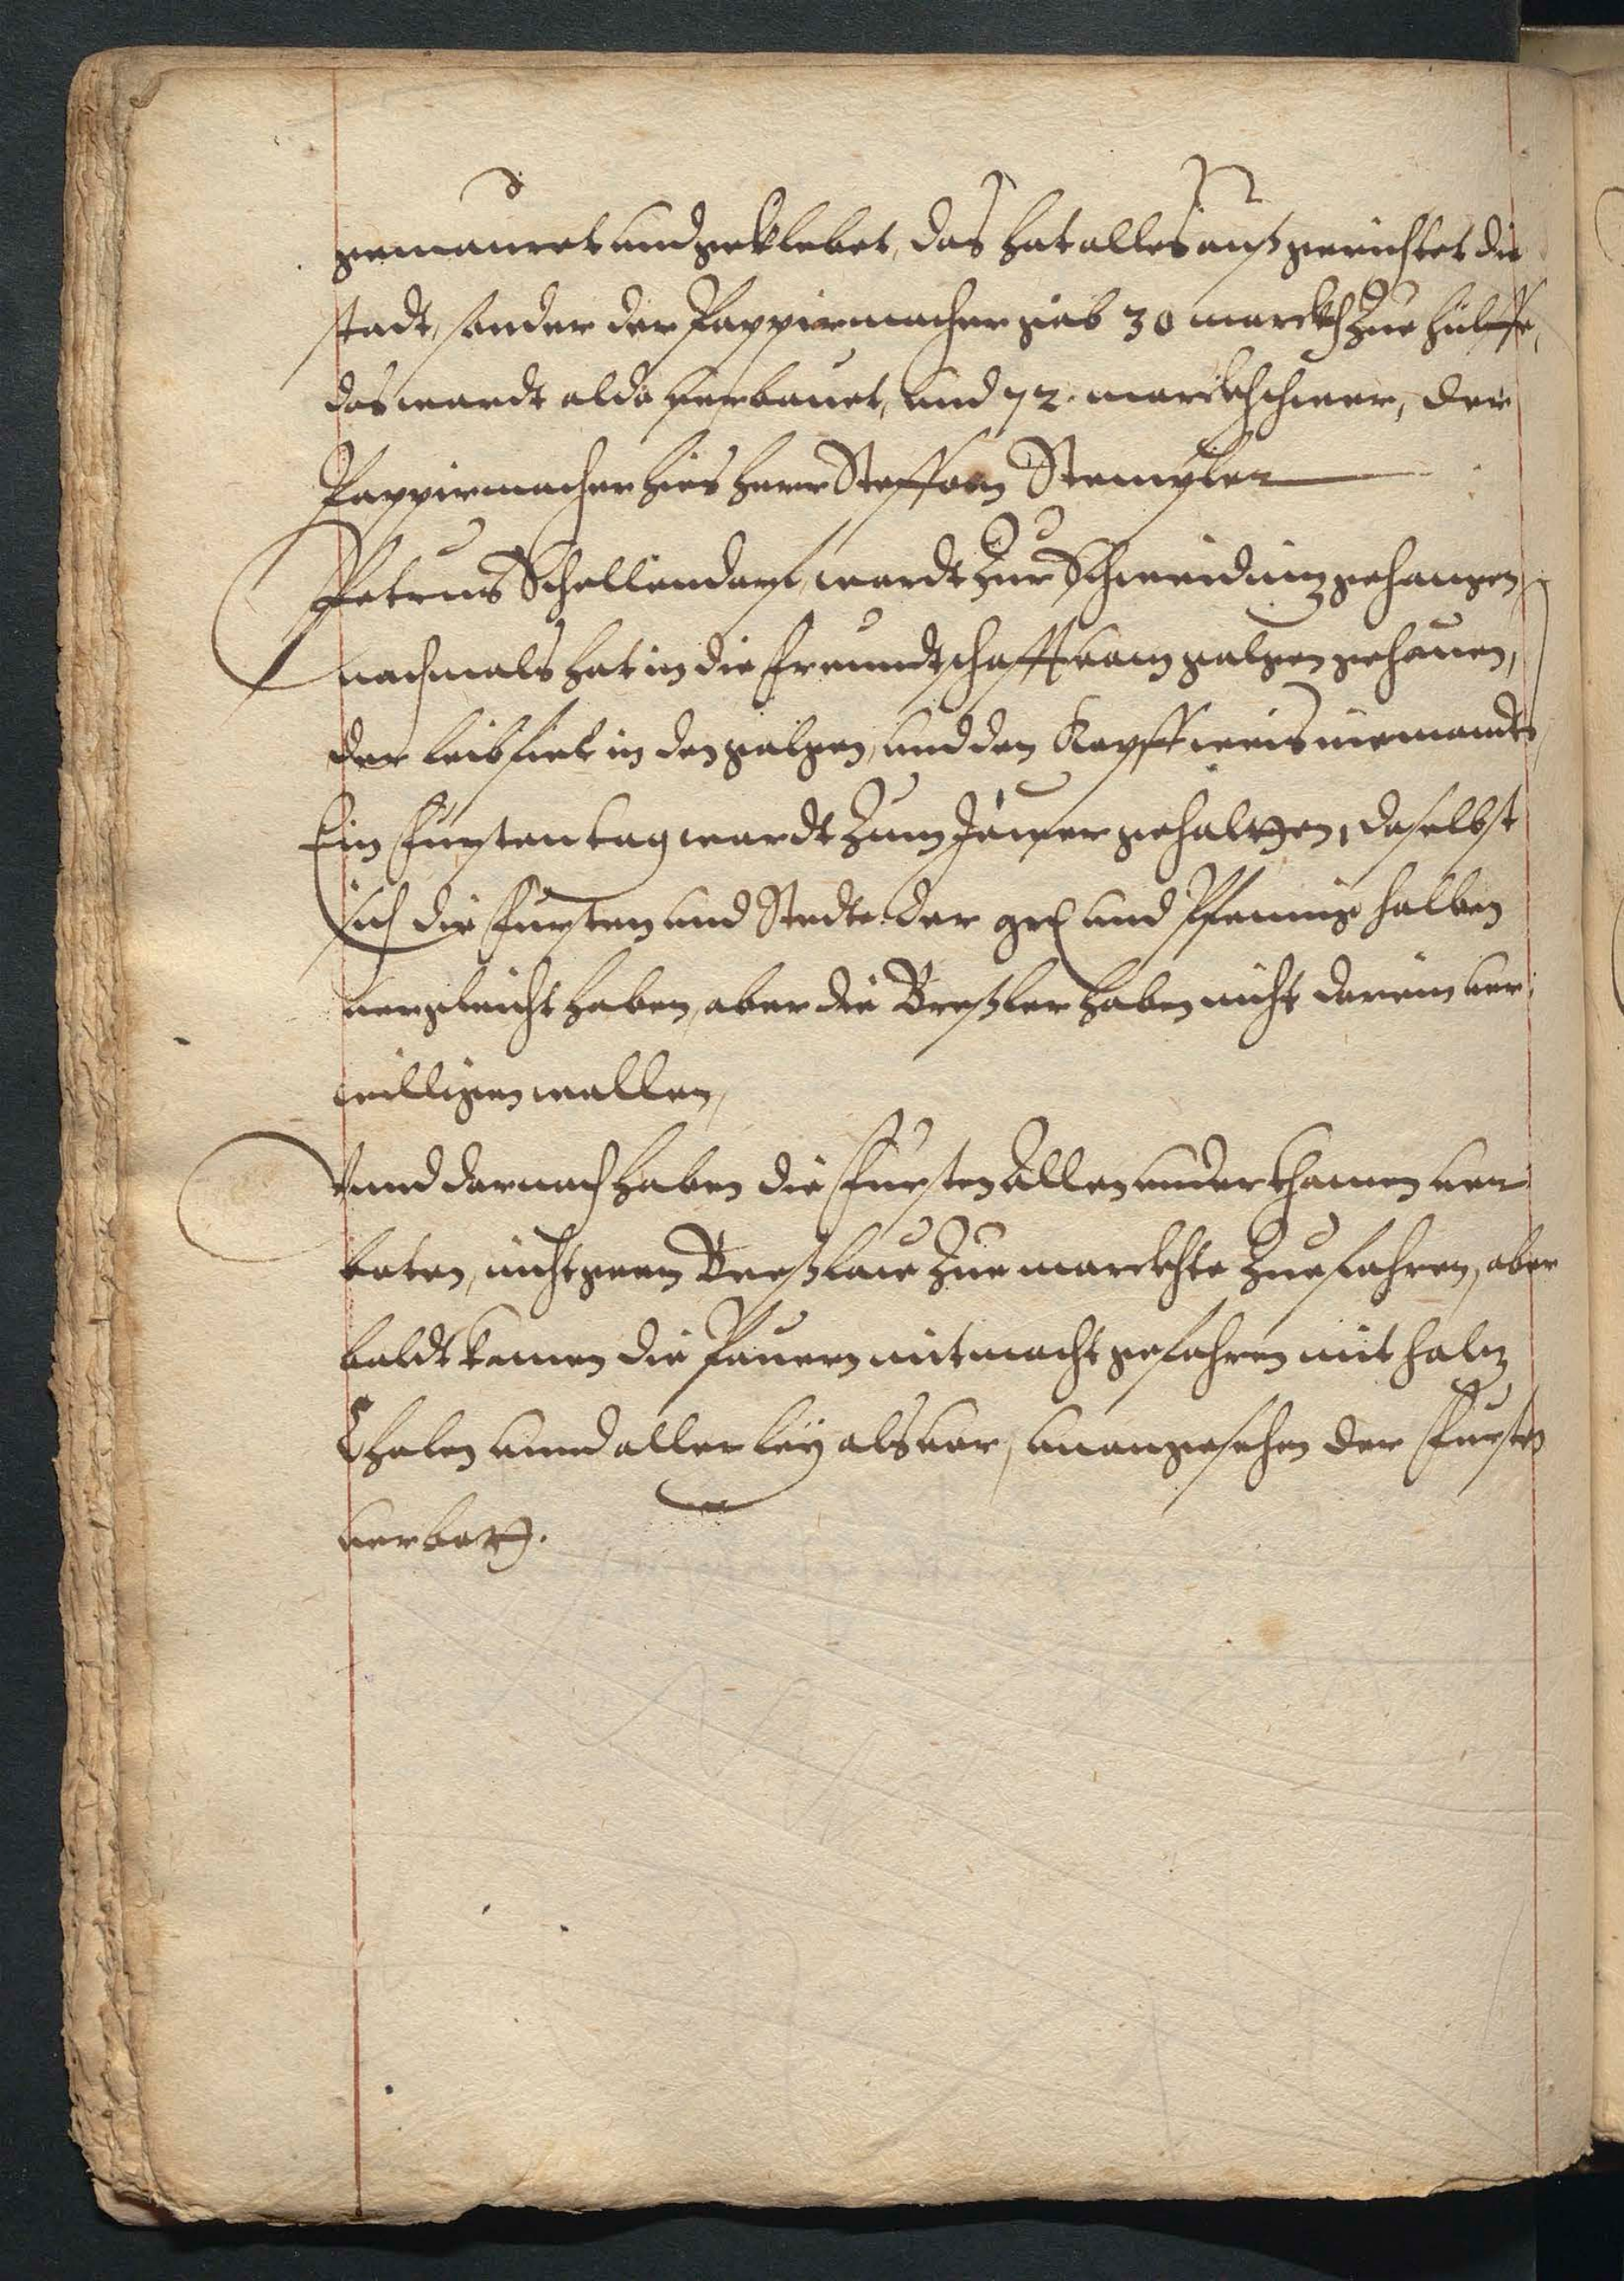 gemauret und geklebet, das hat alles außgerichtet die
stadt, sonder der Pappirmacher gab 30 marckh zue hülffe,
das wardt aldo verbauet, und 72. marckh schwer, der
Pappirmacher hies herr Steffan Stempler
Petrus Schellendorf, wardt zur Schweidnitz gehangen,
nachmals hat in die freundtschafft vom galgen gehauen,
der leib fiel in den galgen, und den Kopff weis niemandt,
Ein Furstentag wardt zum Jauer gehalten, daselbst
sich die Fursten und Stedte der gr und Pfennige halben
vergleicht haben, aber die Breßler haben nicht darein ver,
willigen wollen,
Vnnd darnach haben die Fursten Allen underthanen ver
boten, nicht genn Breßlaw zue marckhte zue fahren, aber
baldt kamen die Pauern mit macht gefahren mit holtz
Kholen unnd allerley als vor, unangesehen der Fursten
verbott.